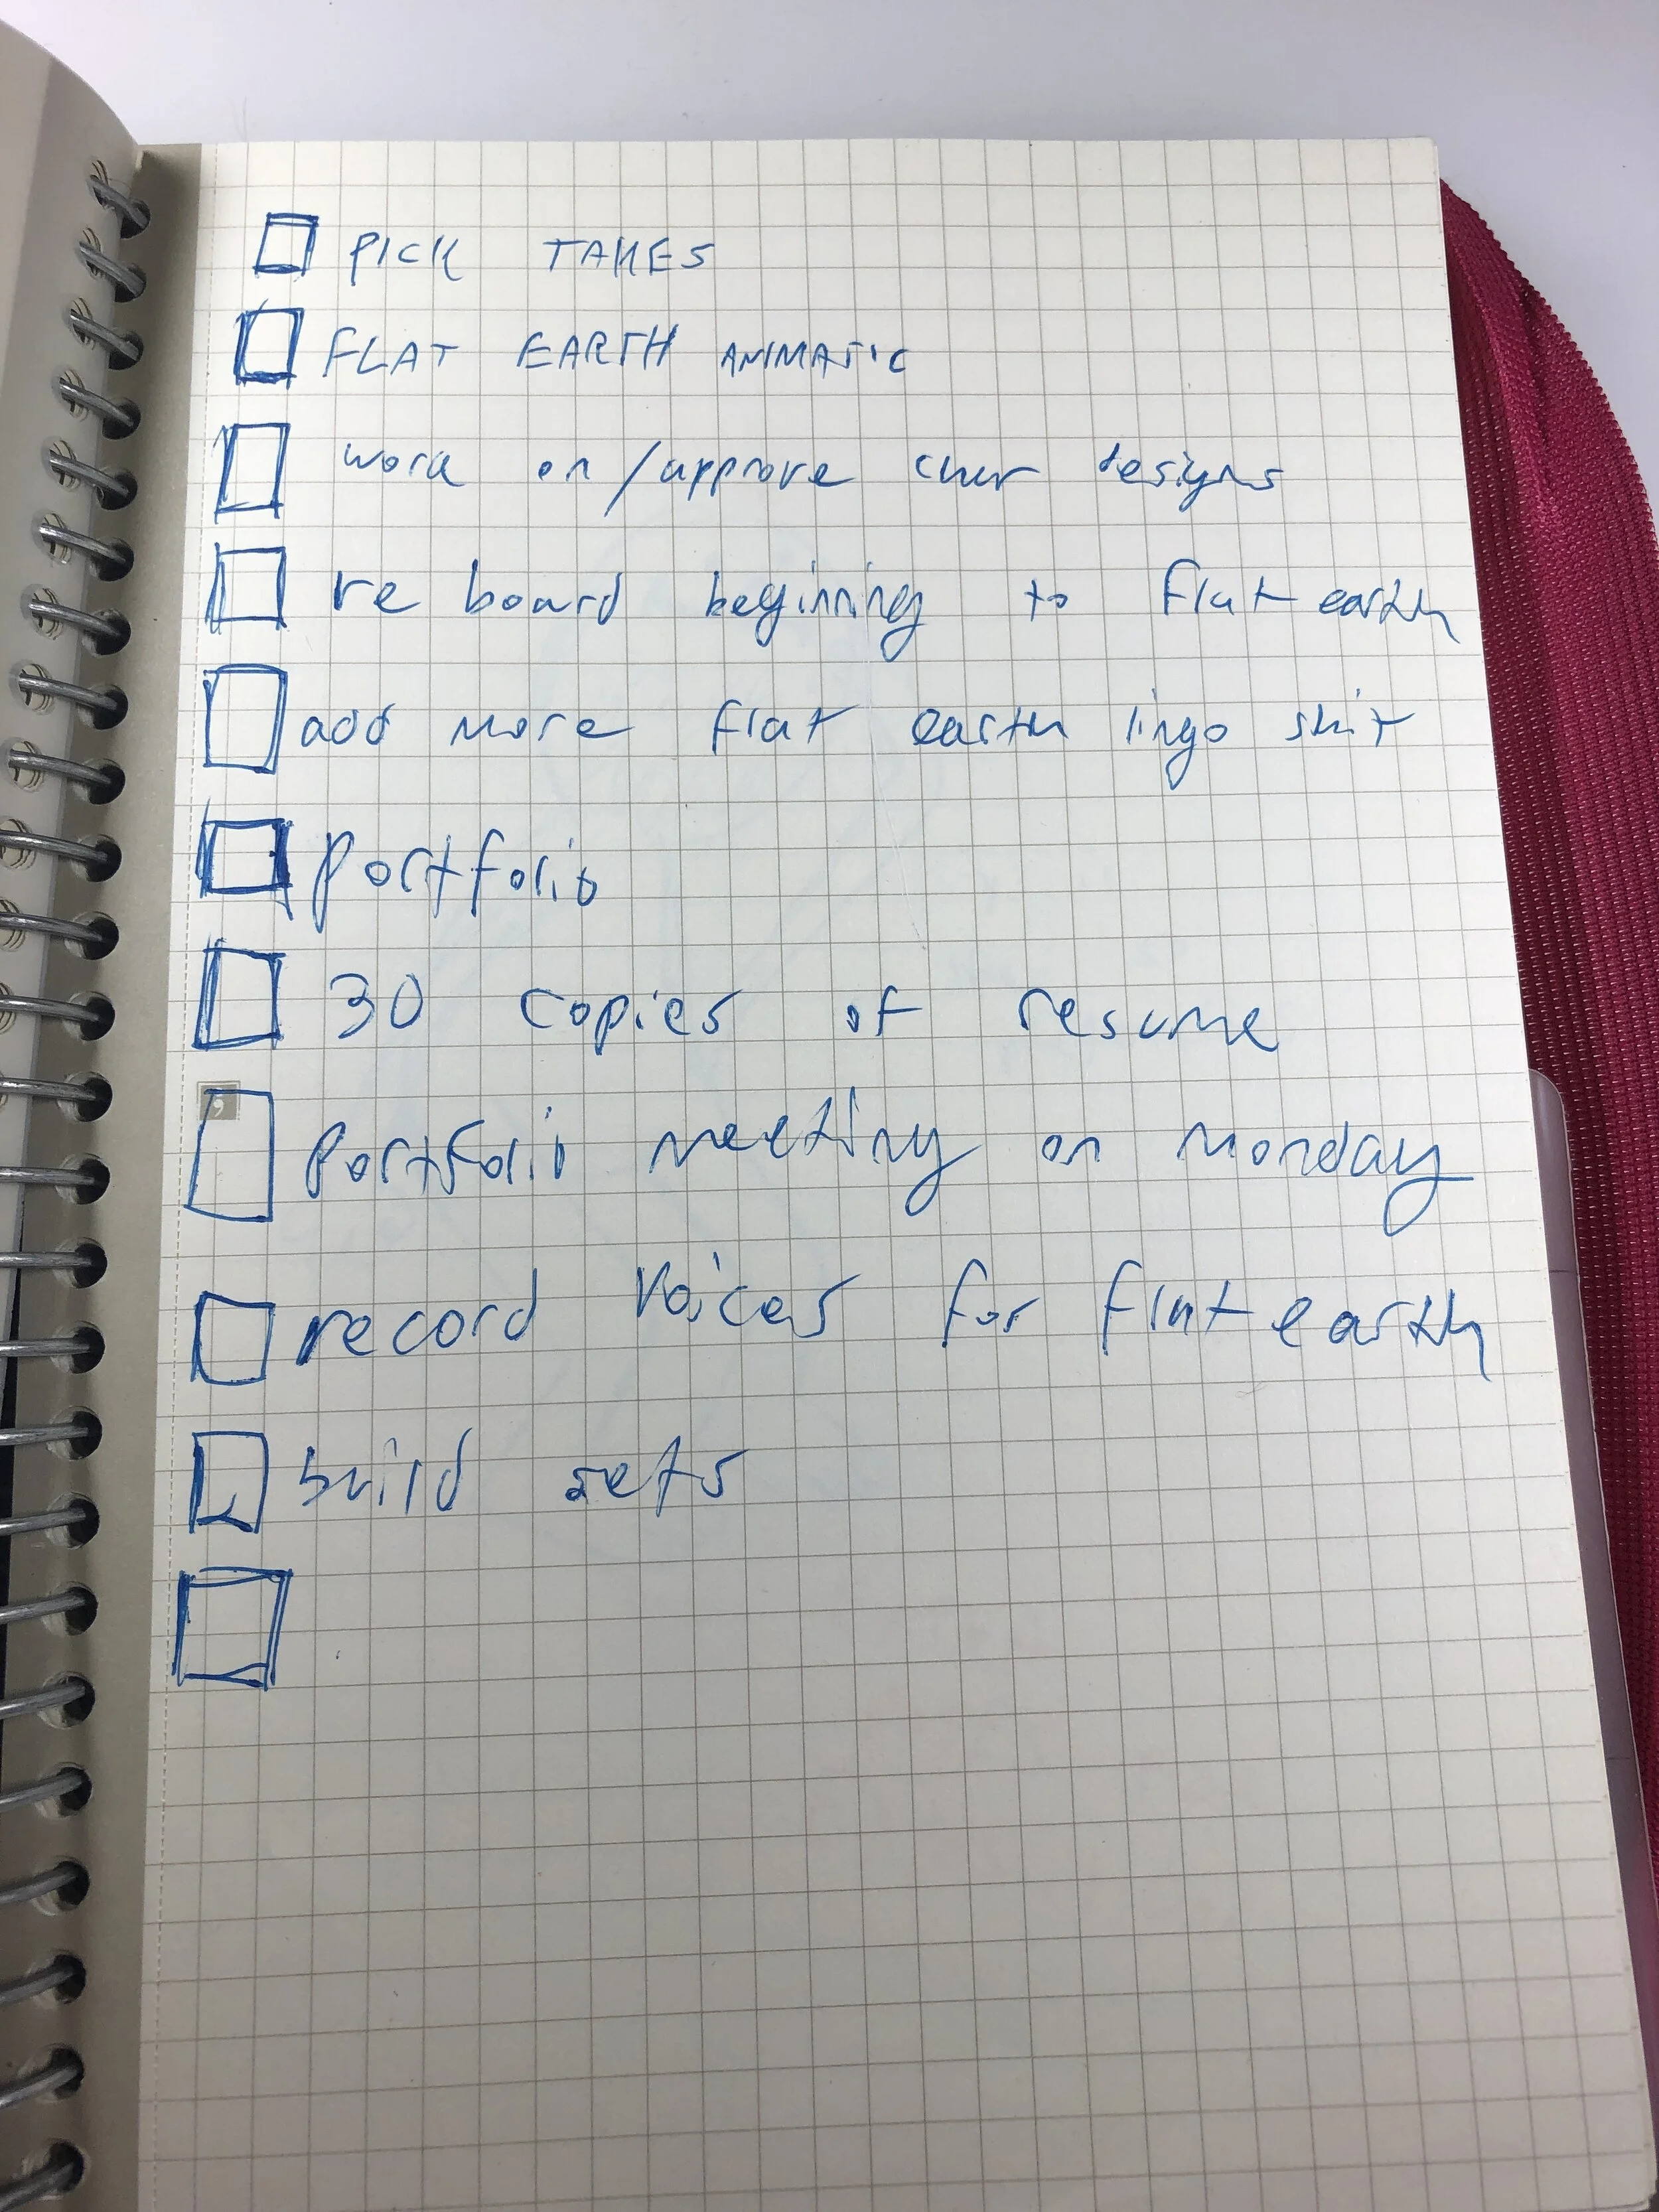 PICK TAKES
FLAT EARTH ANIMATIC
work on/approve char designs
re board beginning to flat earth
add more flat earth lingo shit
portfolio
30 copies of resume
portfolio meeting on monday
record voices for flat earth
build sets